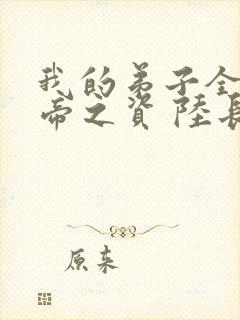 我的弟子全
帝之資 陸長
原来